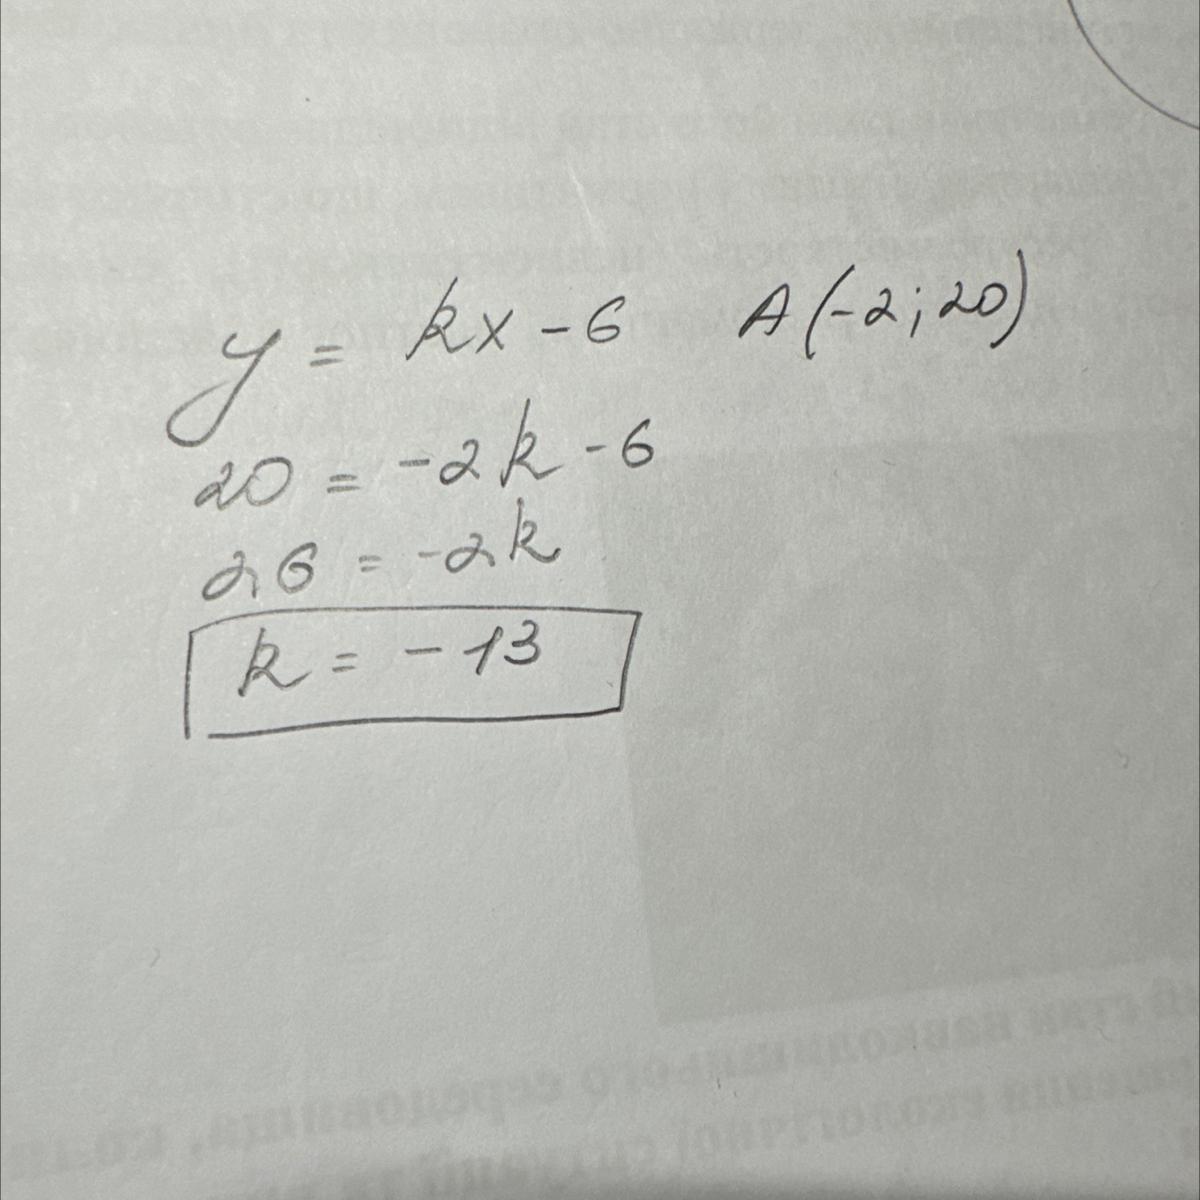 y = kx - 6 A(-2; 20)
20 = -2k - 6
26 = -2k
k = -13